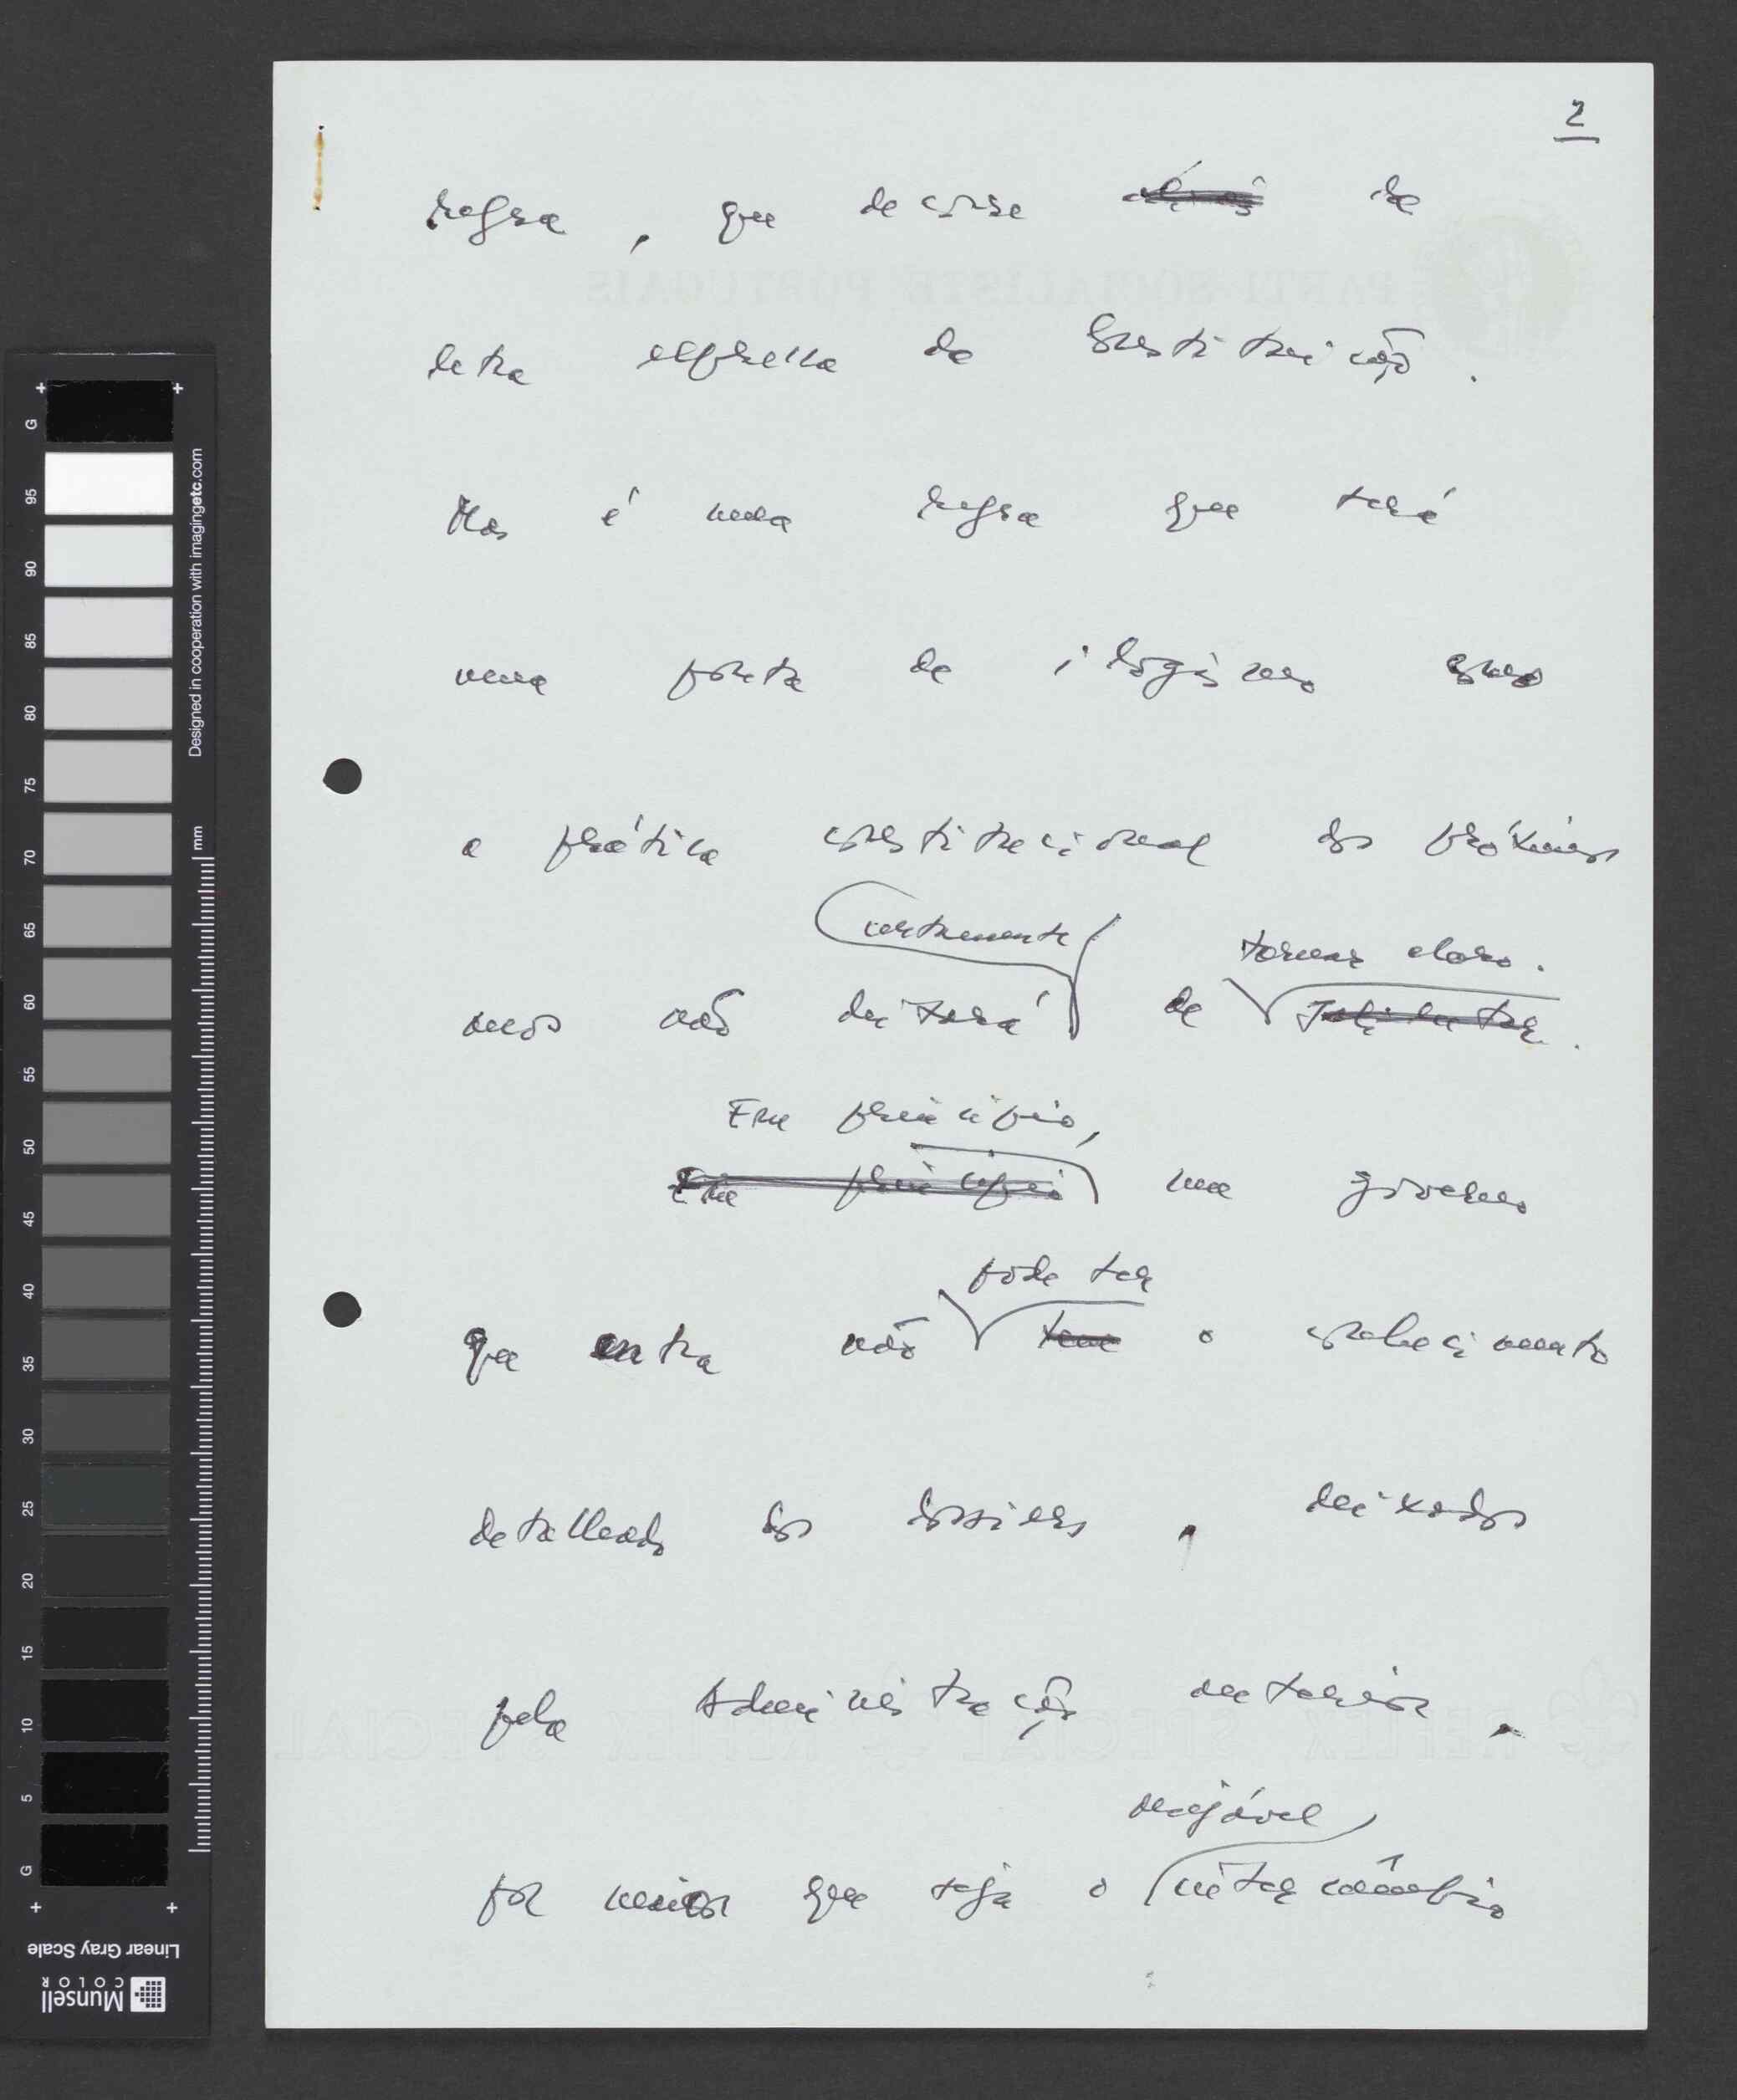 2
regra, que decorre aliás da
letra expressa da Constituição.
Mas é uma regra que terá
uma ponta de ilogismo como
a prática constitucional dos próximos
certamente tornar claro.
anos não deixará de
Em princípio,
Em princípio um governo
pode ter
que entra não tem o conhecimento
detalhado dos dossiers, deixados
pela Administração anterior,
desejável
por maior que seja o intercâmbio
PARTI SOCIALISTE PORTUGAIS
REFLEX SPECIAL REFLEX SPECIAL
G 95 90 85 80 75 70 65 60 55 50 45 40 35 30 25 20 15 10 5 G
Designed in cooperation with imagingetc.com
mm
Linear Gray Scale
Munsell
COLOR